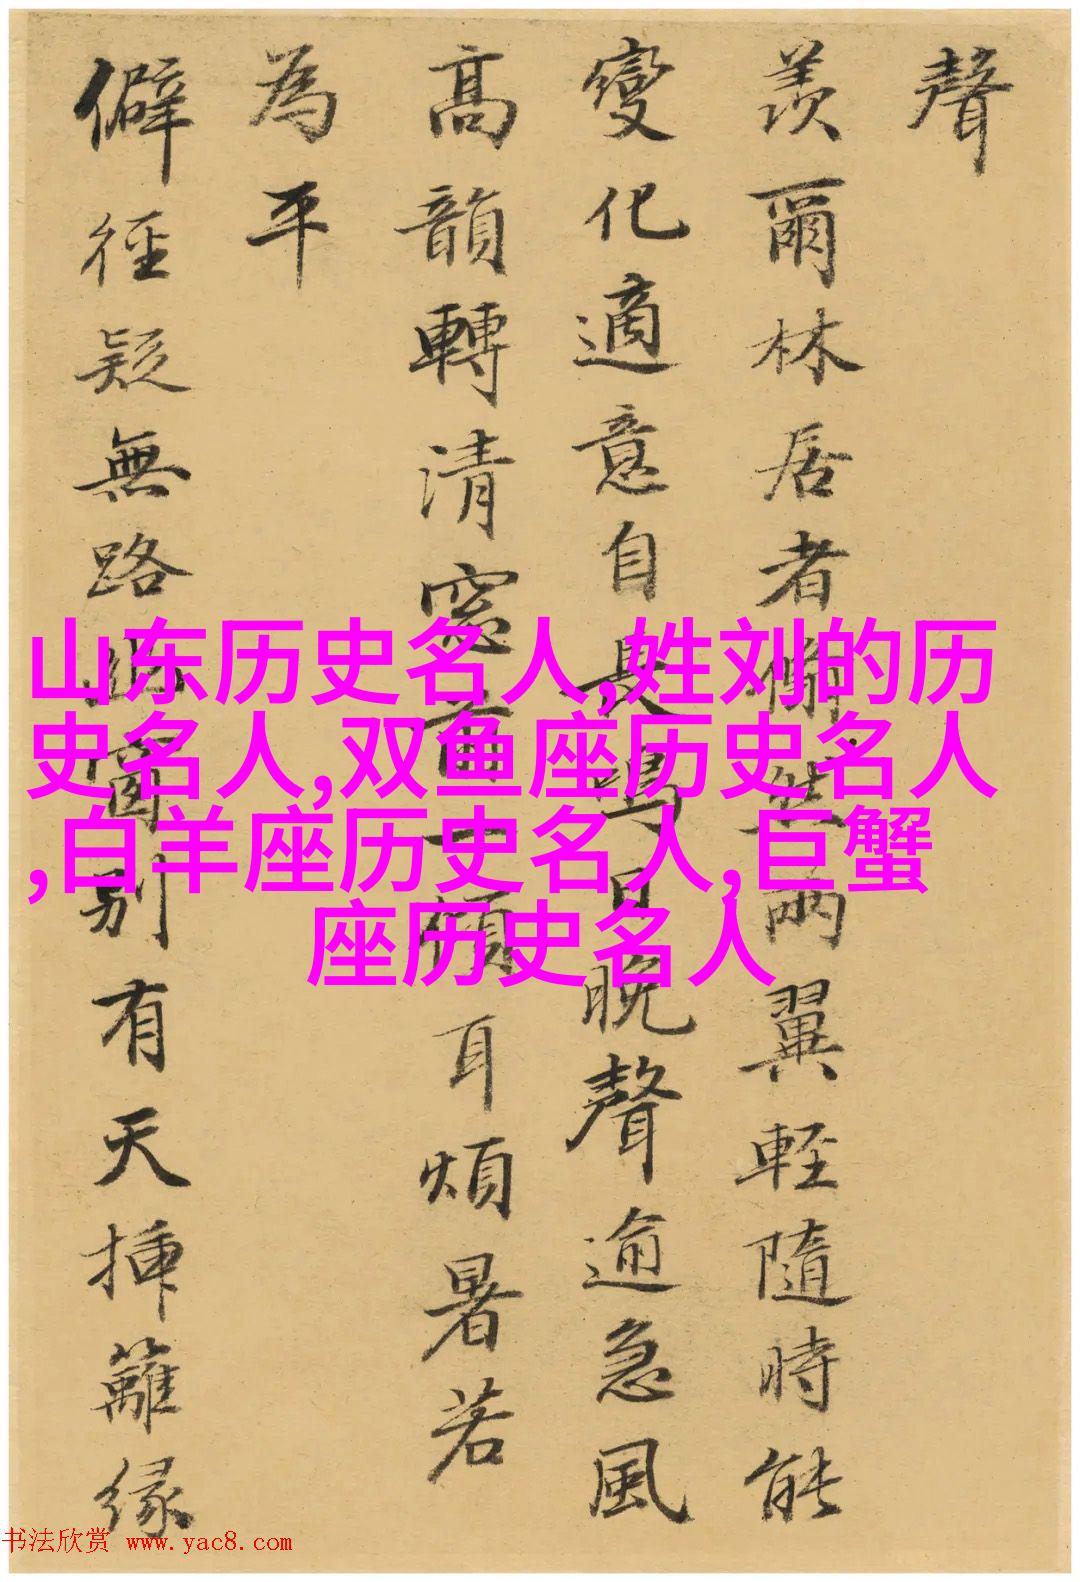 聲
羨爾林居者翛然兩翼輕隨時能
變化適意自飛鳴月晚聲逾急風
高韻轉清窓前一傾耳煩暑若
為平
僻徑疑無路幽窗別有天揷籬緣
山东历史名人,姓刘的历
史名人,双鱼座历史名人
,白羊座历史名人,巨蟹
座历史名人
书法欣赏 www.yac8.com